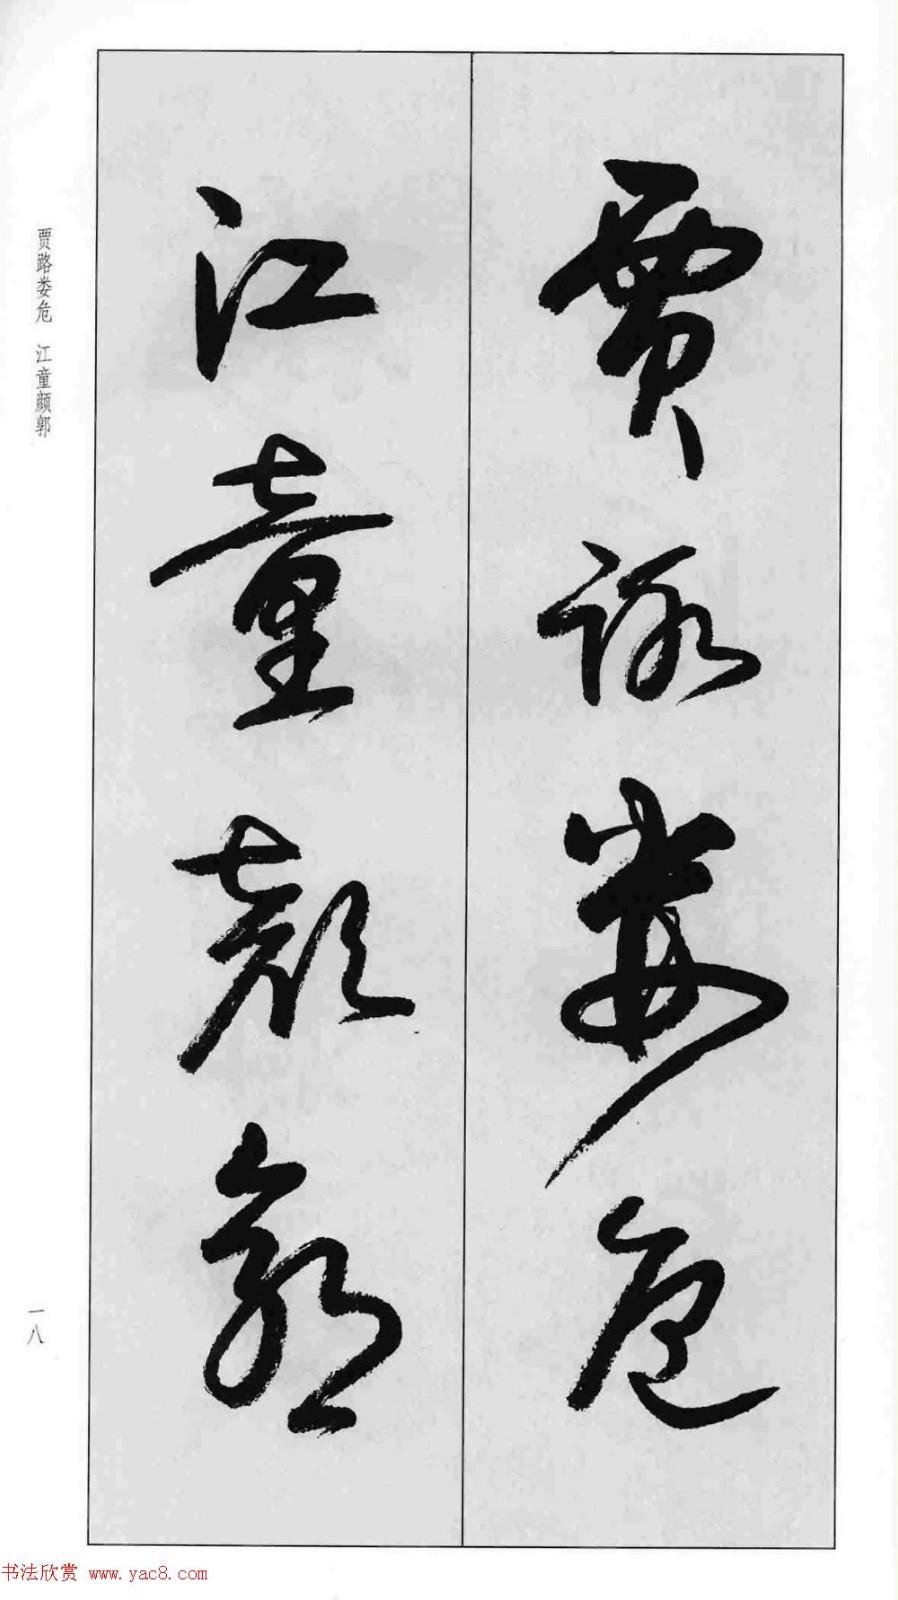 賈路婁危
江童顏郭
贾路娄危 江童颜郭
一八
书法欣赏 www.yac8.com